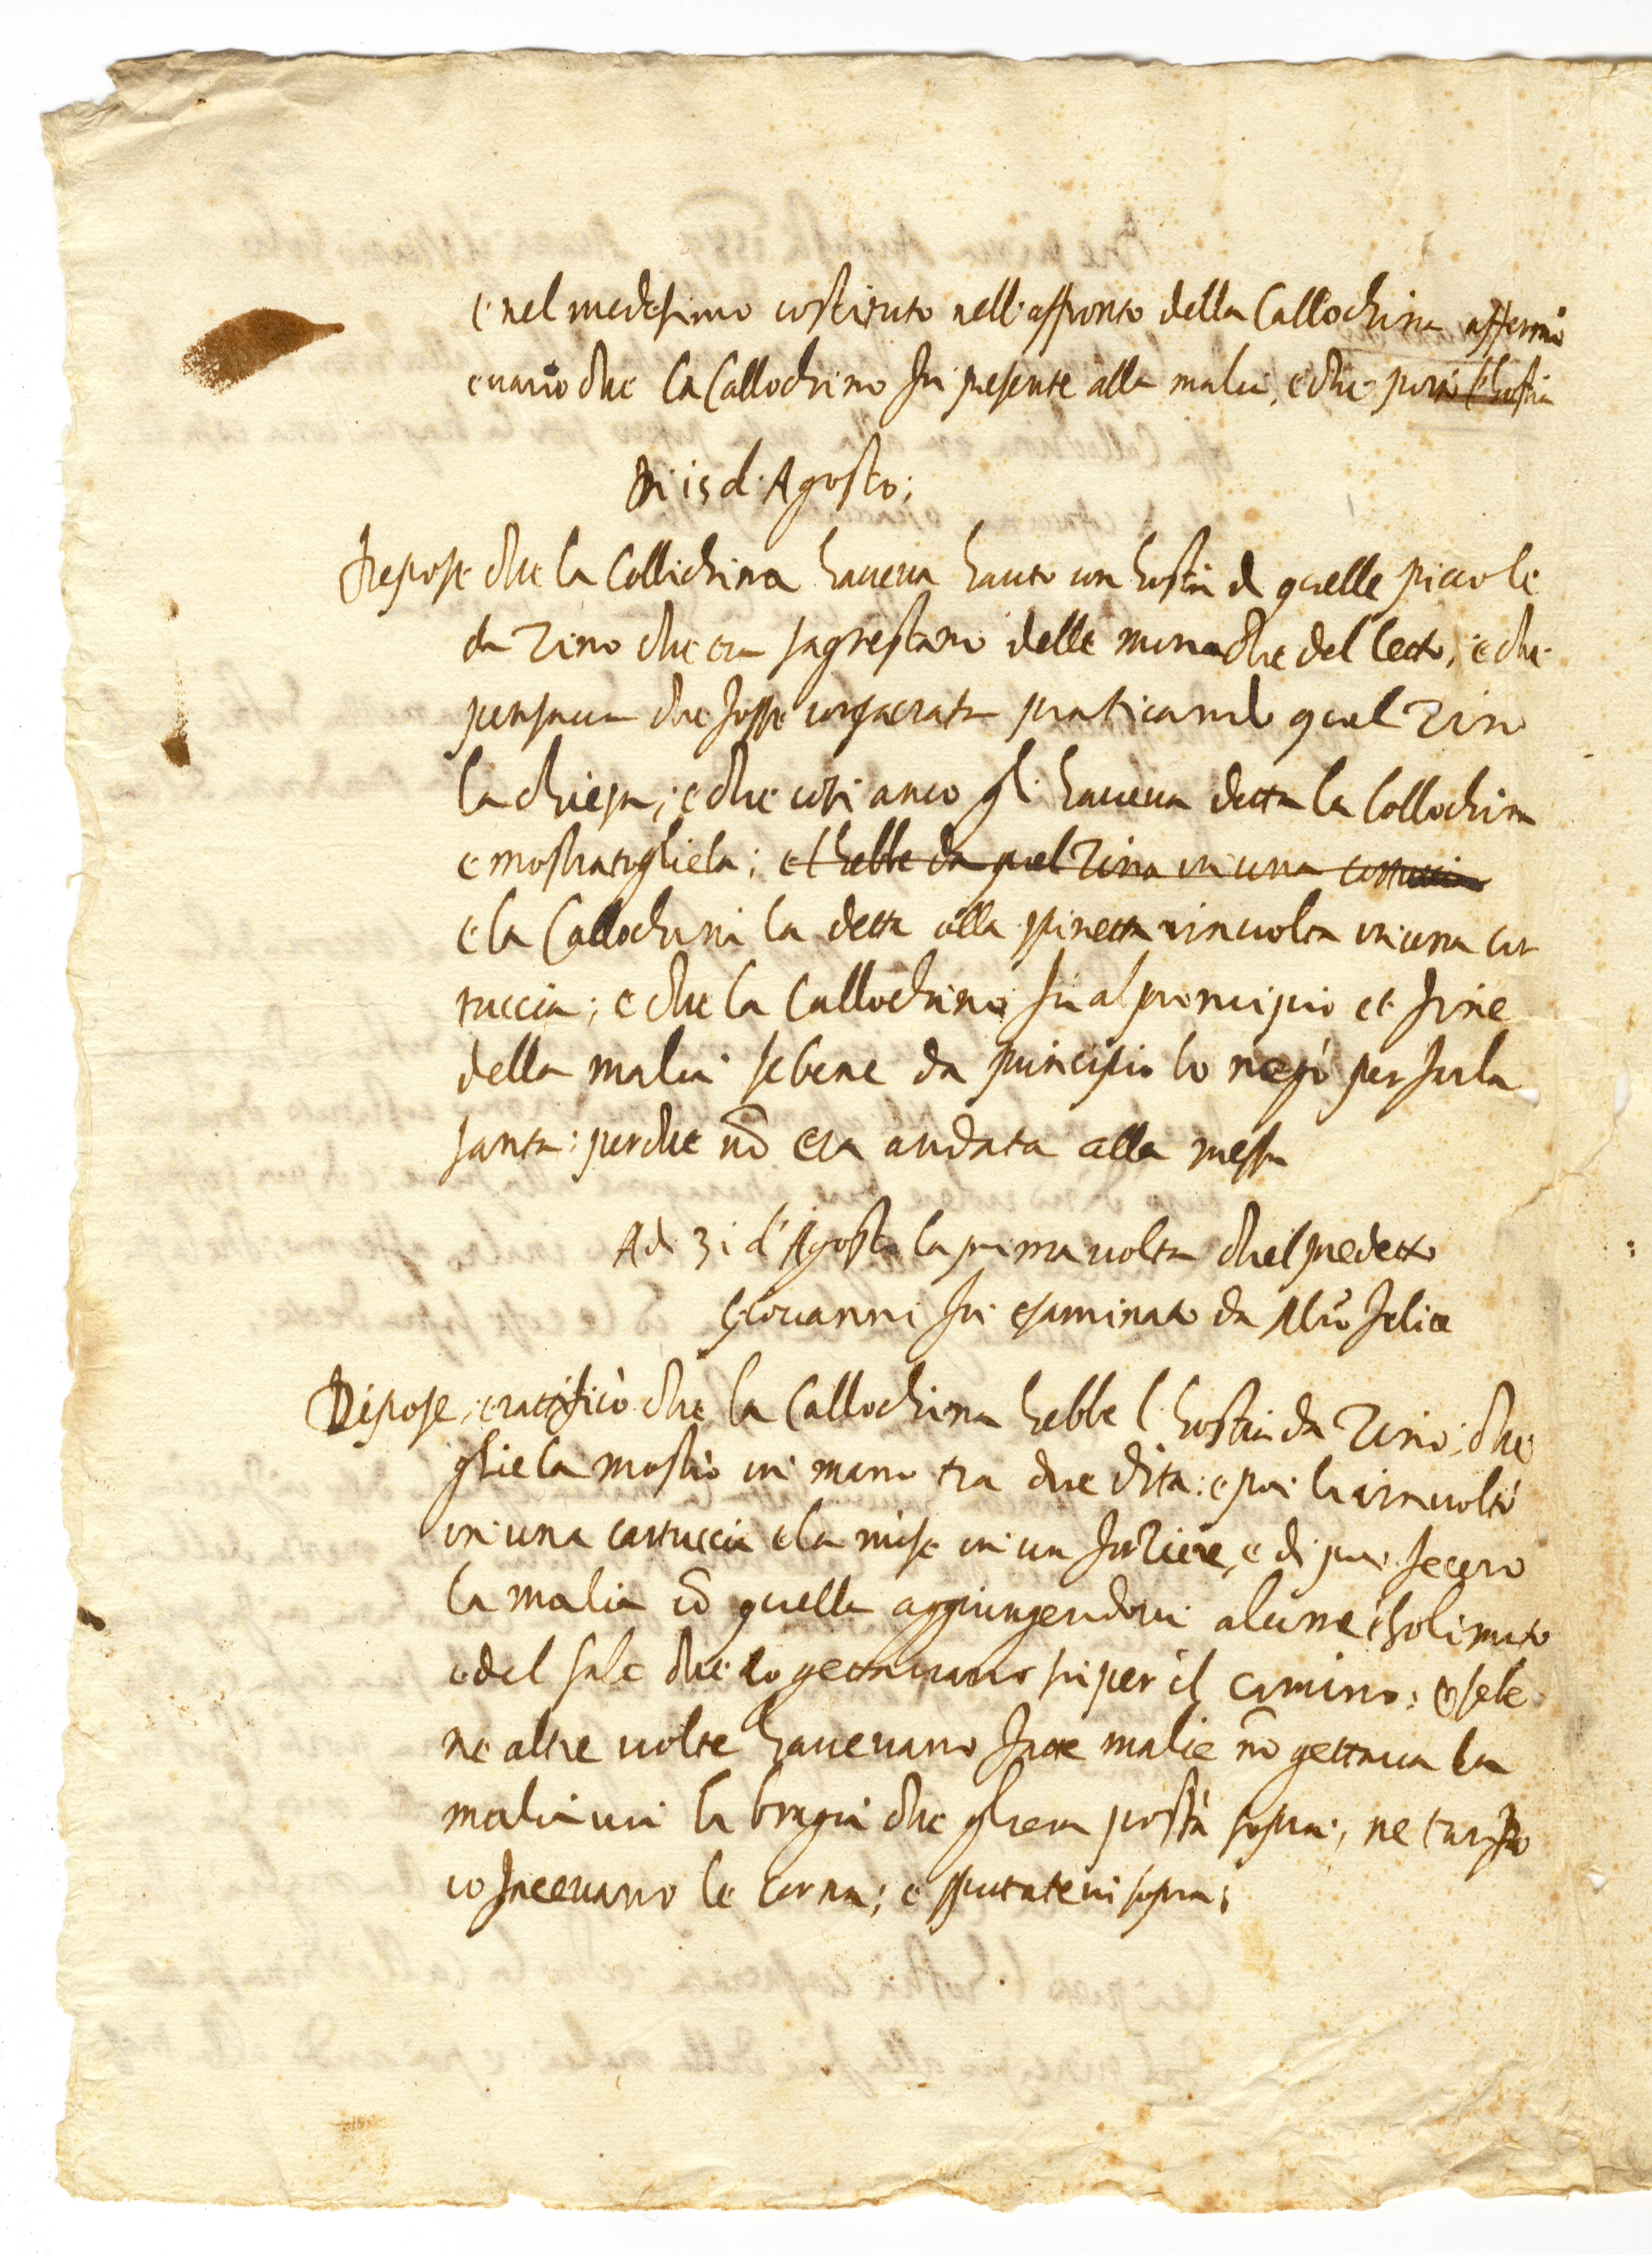 e nel medesimo costituto nell'affronto della Callochina affermò
e variò che la Callochina fu presente alla malia, e che portò l'hostia
Di 15 d'Agosto;
Depose che la Collichina haveva hauto un hostia di quelle piccole
da Zino che era sagrestano delle monache del Cecto, e che
pensava che fosse consacrata praticando quel Zino
la chiesa; e che così anco gli haveva detto la Collochina
e mostratogliela; et hebbe da quel Zino in una cartuccia
e la Callochina la dette alla spinetta rinvolta in una car
tuccia; e che la Callochina fu al principio et fine
della malia sebene da principio lo negò per farla
santa: perche nõ era andata alla messa
Adi 31 d'Agosto la prima volta che'l predetto
Giovanni fu esaminato da Felice
Depose, e ratificò che la Callochina hebbe l'hostia da Zino, che
gliela mostrò in mano tra due dita: e poi la rinvoltò
in una cartuccia e la mise in un forziere, e di poi fecero
la malia cõ quella aggiungendovi alume e solimato
e del sale che lo gettavano su per il camino: e sebe
ne altre volte havevano fatte malie nõ gettava la
malia via la bragia che gliera posta sopra, ne
co facevano le corna; e sputatevi sopra;